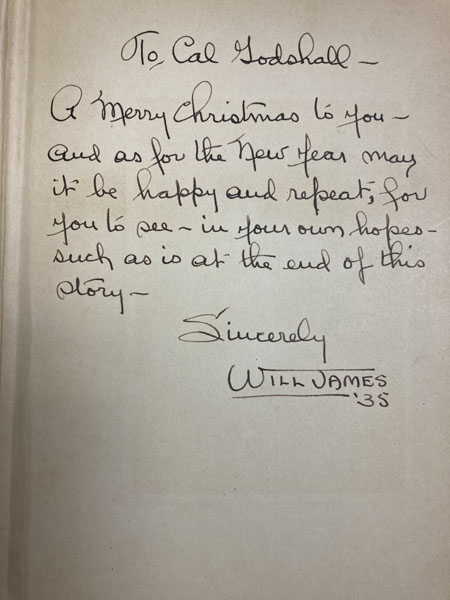 To Cal Godshall –
A Merry Christmas to you –
and as for the New Year may
it be happy and repeat, for
you to see – in your own hopes –
such as is at the end of this
story –
Sincerely
WILL JAMES
'35